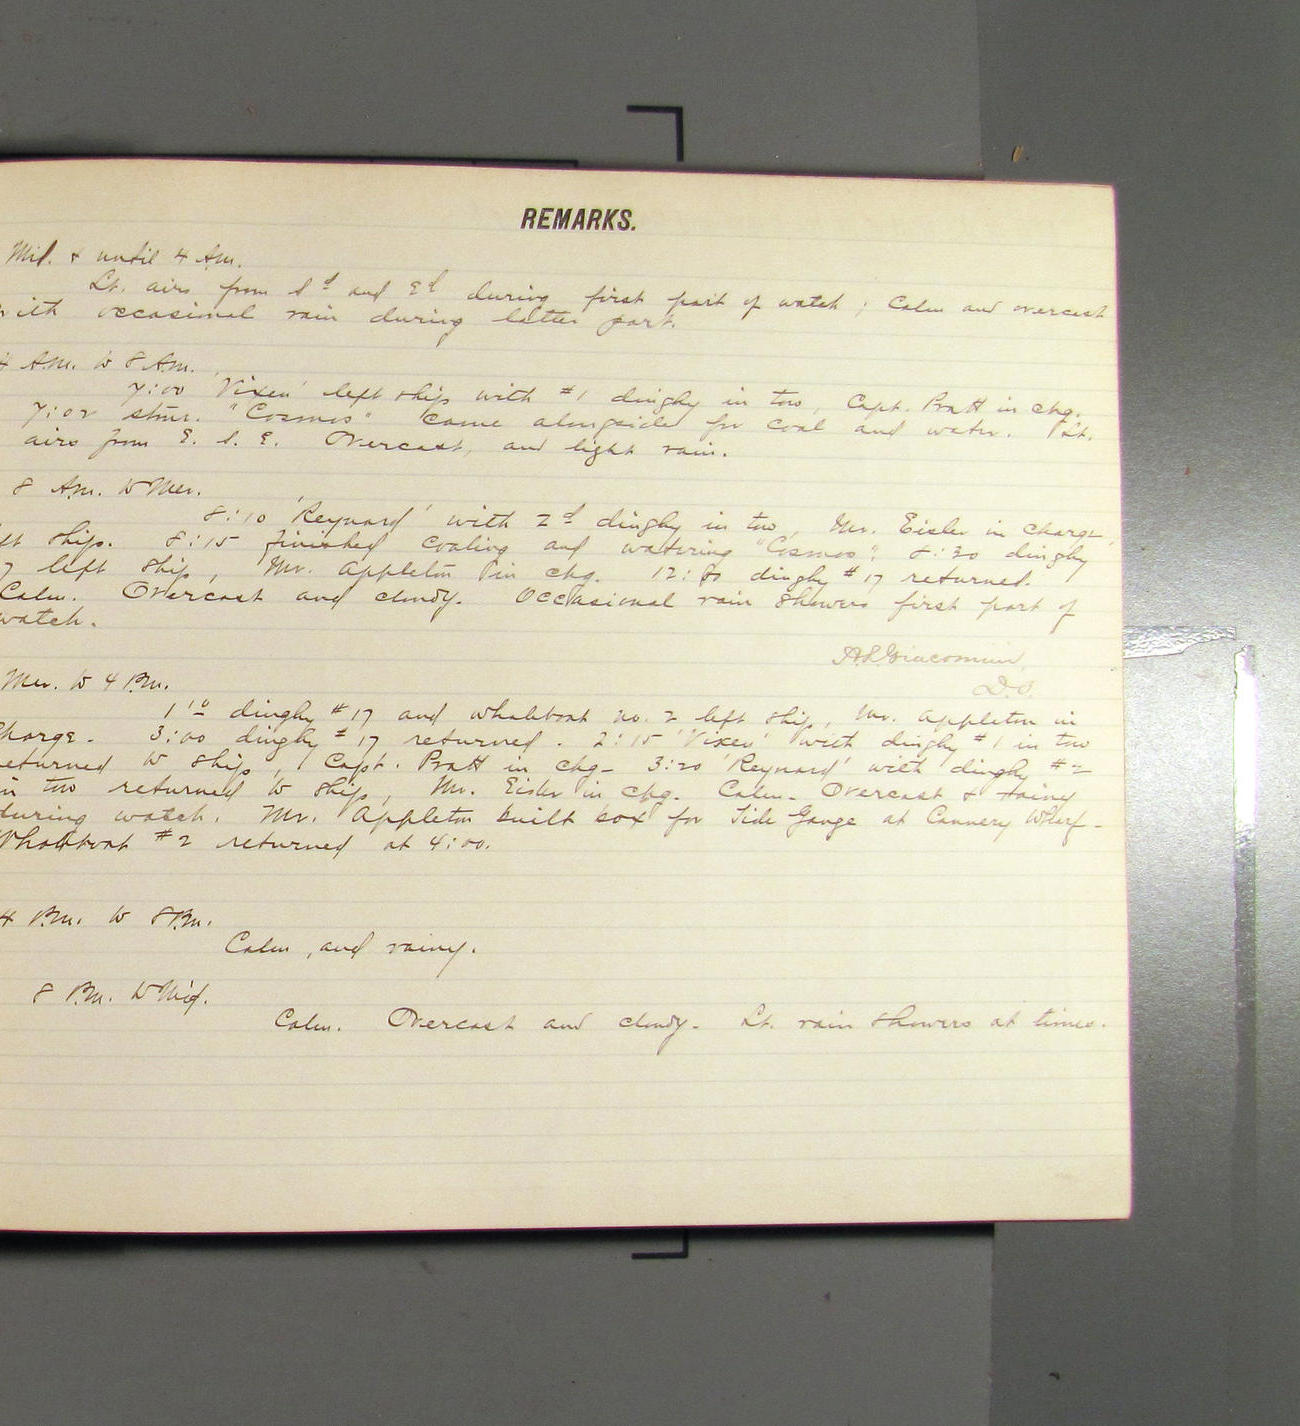 REMARKS.
Mid. & until 4 Am.
Lt. airs from S'd and E'd during first part of watch; Calm and overcast
with occasional rain during latter part.
4 A.M. to 8 A.M.
7:00 'Vixen' left ship with #1 dinghy in tow, Capt. Pratt in chg.
7:02 stmr. "Cosmos" came alongside for coal and water. Lt.
airs from E.S.E. Overcast, and light rain.
8 Am. to Mer.
8:10 'Reynard' with 2d dinghy in tow, Mr. Eisler in charge,
ft ship. 8:15 finished coaling and watering "Cosmos". 8:30 dinghy
7 left ship, Mr. Appleton in chg. dinghy #17 returned.
Calm. Overcast and cloudy. Occasional rain showers first part of
watch.
D.O.
Mer. to 4 Pm.
1 10 dinghy #17 and whaleboat no. 2 left ship, Mr. Appleton in
Charge. 3:00 dinghy #17 returned. 2:15 'Vixen' with dinghy #1 in tow
returned to ship, Capt. Pratt in chg. 3:20 'Reynard' with dinghy #2
in tow returned to ship, Mr. Eisler in chg. Calm. Overcast & rainy
during watch. Mr. Appleton built box for Tide Gauge at Cannery Wharf.
Whaleboat #2 returned at 4:00.
4 Pm. to 8 Pm.
Calm, and rainy.
8 Pm. to Mid.
Calm. Overcast and cloudy. Lt. rain showers at times.